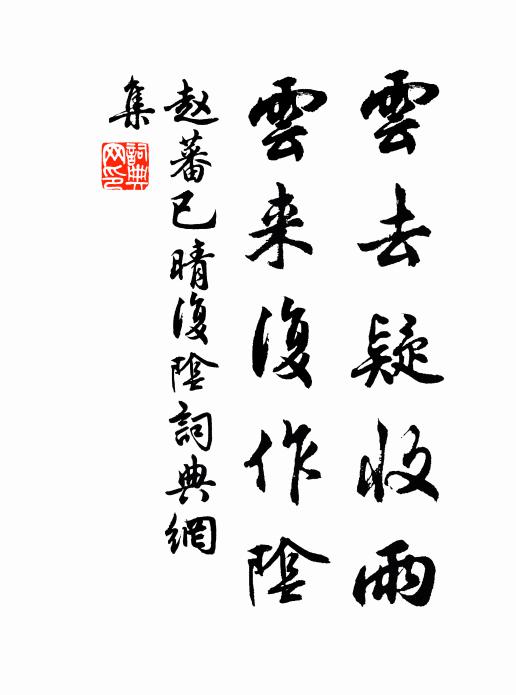 雲去疑收雨
雲来復作陰
赵蕃已晴復陰詞典網
集
詞典網印